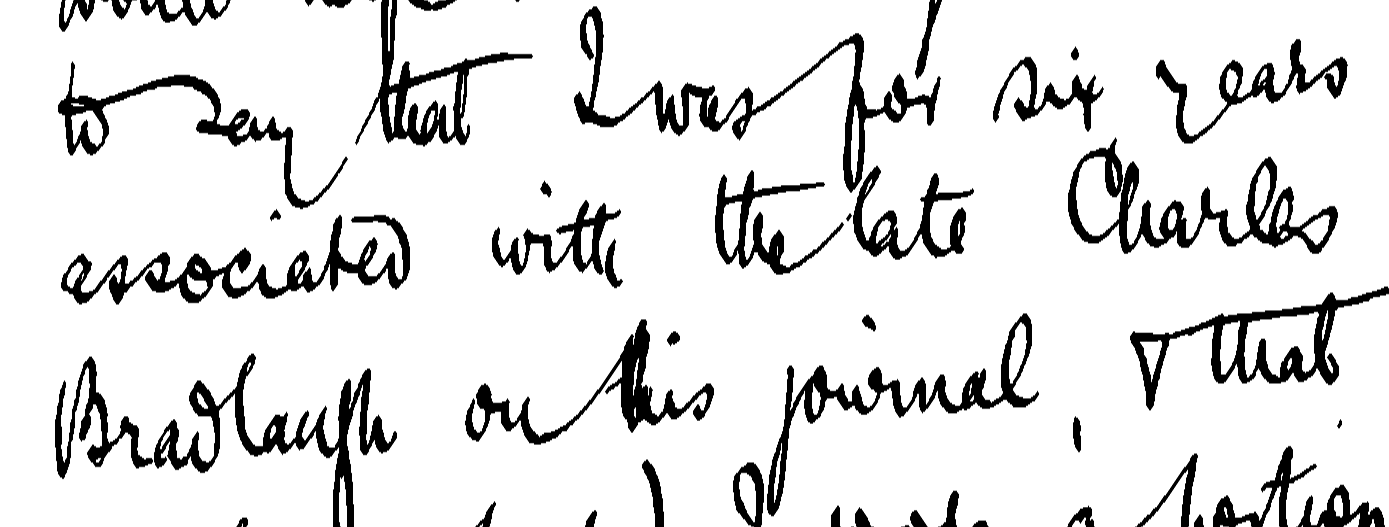 to say that I was for six years
associated with the late Charles
Bradlaugh on his journal, & that
I wrote a portion